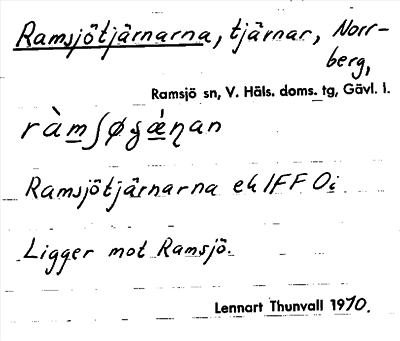 Ramsjötjärnarna, tjärnar, Norr-
berg,
Ramsjö sn, V. Häls. doms. tg, Gävl. l.
ràm̲ʃøɕǽ̲ɳan
Ramsjötjärnarna ek IFF Oi
Ligger mot Ramsjö.
Lennart Thunvall 1970.